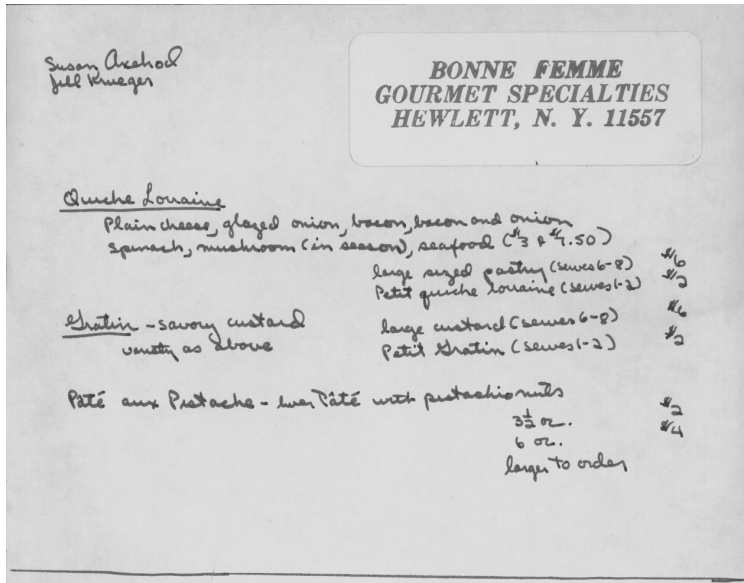 Susan Axelrod
Jill Krueger
BONNE FEMME
GOURMET SPECIALTIES
HEWLETT, N. Y. 11557
Quiche Lorraine
Plain cheese, glazed onion, bacon, bacon and onion
spinach, mushroom (in season), seafood ($3 & $7.50)
large sized pastry (serves 6-8) $6
Petit quiche lorraine (serves 1-2) $2
Gratin - savory custard large custard (serves 6-8) $6
variety as above Petit Gratin (serves 1-2) $2
Pâté aux Pistache - liver Pâté with pistachio nuts
3½ oz. $2
6 oz. $4
larger to order